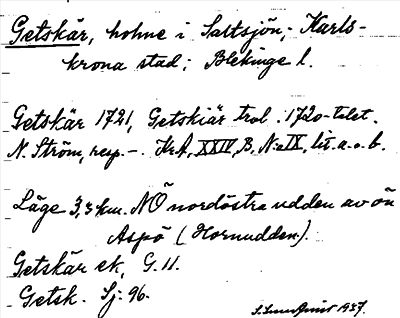 Getskär, holme i Saltsjön; Karls-
krona stad; Blekinge l.
Getskär 1721, Getskiär trol. 1720-talet.
N. Ström, resp. -. KrA, XXIV, B, N:o IX, lit. a. o. b.
Läge 3,3 km. NÖ nordöstra udden av ön
Aspö (Hornudden).
Getskär ek, G. 11.
Getsk. Sj: 96.
1937.